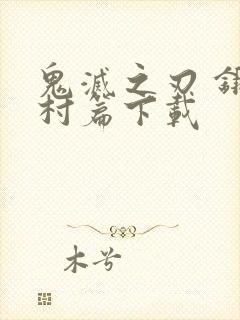 鬼滅之刃
村篇下載
木兮